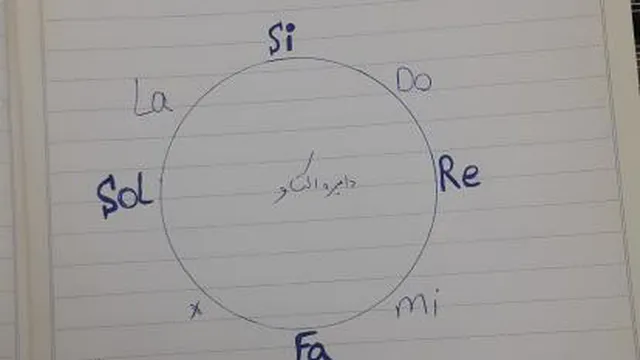 Si
La
Do
دایره اکتاو
Sol
Re
x
mi
Fa